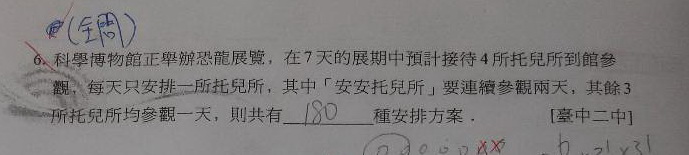 (全問)
6. 科學博物館正舉辦恐龍展覽，在7天的展期中預計接待4所托兒所到館參
觀，每天只安排一所托兒所，其中「安安托兒所」要連續參觀兩天，其餘3
所托兒所均參觀一天，則共有 180 種安排方案．[臺中二中]